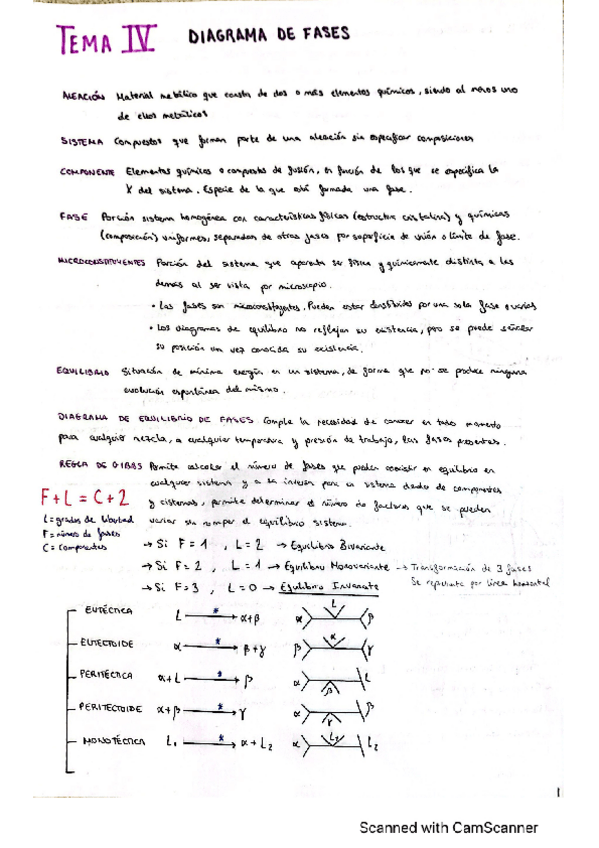 TEMA IV DIAGRAMA DE FASES
ALEACIÓN Material metálico que consta de dos o más elementos químicos, siendo al menos uno
de ellos metálicos
SISTEMA Compuestos que forman parte de una aleación sin especificar composiciones
COMPONENTE Elementos químicos o compuestos de fusión, en función de los que se especifica la
X del sistema. Especie de la que está formada una fase.
FASE Porción sistema homogénea con características físicas (estructura cristalina) y químicas
(composición) uniformes, separadas de otras fases por superficie de unión o límite de fase.
MICROCONSTITUYENTES Porción del sistema que aparenta ser física y químicamente distinta a las
demás al ser vista por microscopio.
• Las fases son microconstituyentes. Pueden estar constituidos por una sola fase o varias
• Los diagramas de equilibrio no reflejan su existencia, pero se puede señalar
su posición una vez conocida su existencia.
EQUILIBRIO Situación de mínima energía en un sistema, de forma que no se produce ninguna
evolución espontánea del mismo.
DIAGRAMA DE EQUILIBRIO DE FASES Cumple la necesidad de conocer en todo momento
para cualquier mezcla, a cualquier temperatura y presión de trabajo, las fases presentes.
REGLA DE GIBBS Permite calcular el número de fases que pueden coexistir en equilibrio en
cualquier sistema y a la inversa para un sistema dado de componentes
F+L=C+2
y cisternas, permite determinar el número de factores que se pueden
L= grados de libertad
variar sin romper el equilibrio sistema.
F= número de fases
C= componentes
→ Si F=1 , L=2 → Equilibrio Bivariante
→ Si F=2 , L=1 → Equilibrio Monovariante → Transformación de 3 fases
Se representa por línea horizontal
→ Si F=3 , L=0 → Equilibrio Invariante
EUTÉCTICA L * → α+β α L β
EUTECTOIDE α * → β+γ β α γ
PERITÉCTICA α+L * → β α β L
PERITECTOIDE α+β * → γ α γ β
MONOTÉCTICA L₁ * → α+L₂ α L₁ L₂
1
Scanned with CamScanner